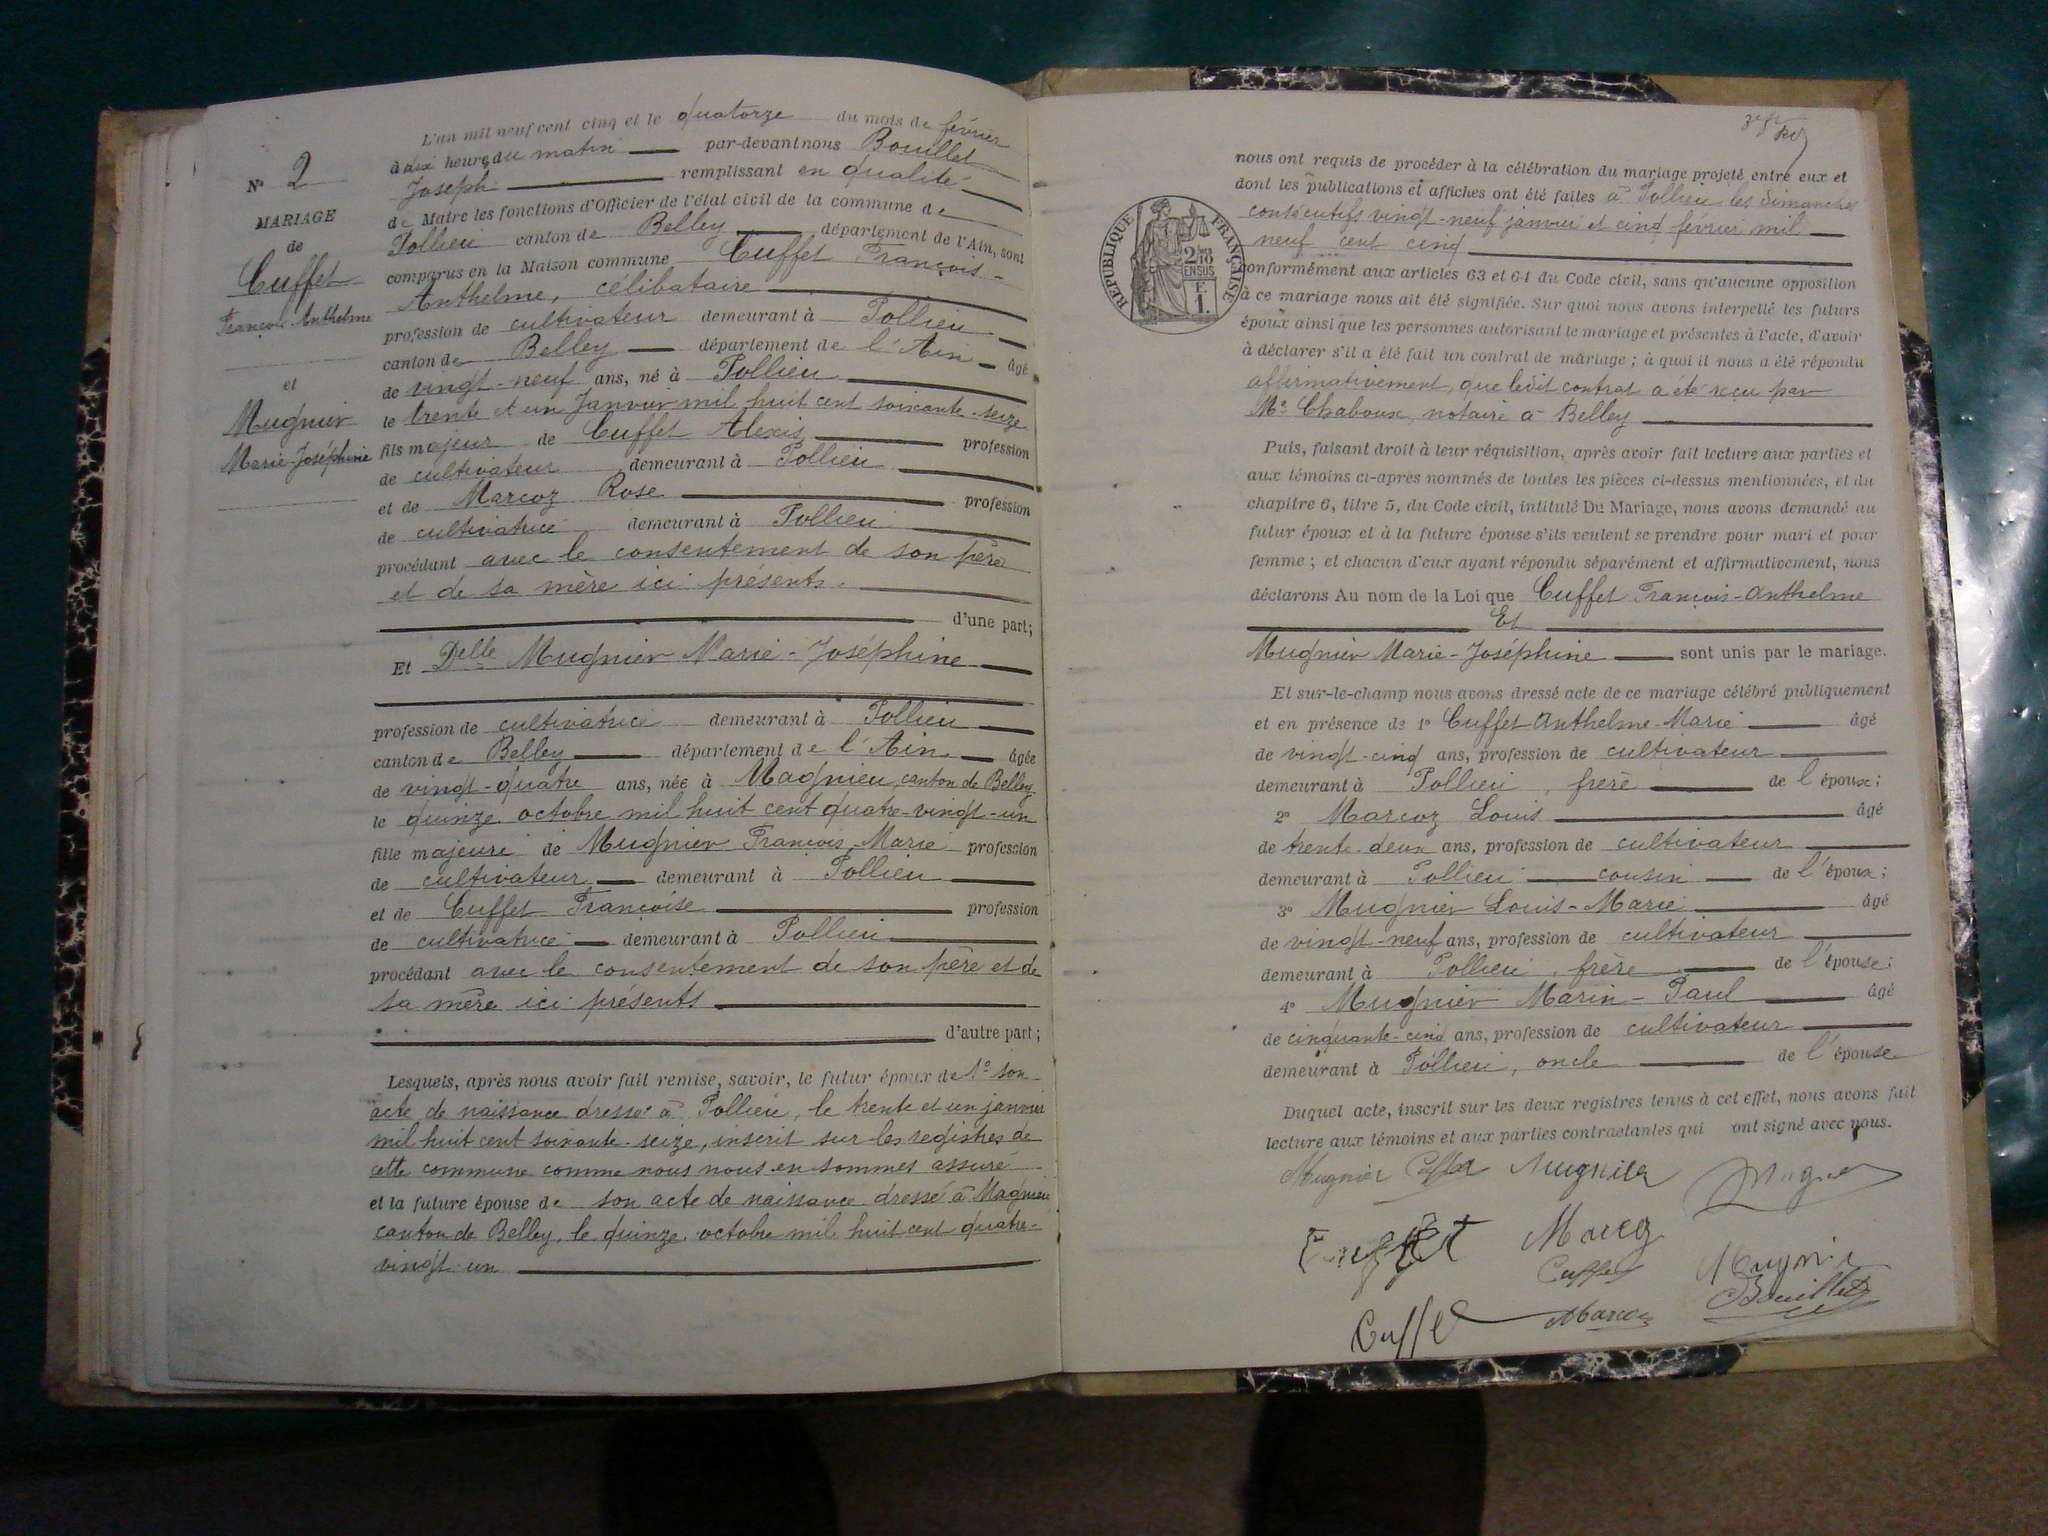 L'an mil neuf cent cinq et le quatorze du mois de février
à dix heures du matin par-devant nous Bouillet
Joseph remplissant en qualité
de Maire les fonctions d'Officier de l'état civil de la commune de
Pollieu canton de Belley département de l'Ain, sont
comparus en la Maison commune Cuffet François-
Anthelme, célibataire
profession de cultivateur demeurant à Pollieu
canton de Belley département de l'Ain âgé
de vingt-neuf ans, né à Pollieu
le trente et un Janvier mil huit cent soixante-seize
fils majeur de Cuffet Alexis profession
de cultivateur demeurant à Pollieu
et de Marcoz Rose profession
de cultivatrice demeurant à Pollieu
procédant avec le consentement de son père
et de sa mère ici présents.
d'une part;
Et Delle Mugnier Marie-Joséphine
profession de cultivatrice demeurant à Pollieu
canton de Belley département de l'Ain âgée
de vingt-quatre ans, née à Magnieu, canton de Belley
le quinze octobre mil huit cent quatre-vingt-un
fille majeure de Mugnier François-Marie profession
de cultivateur demeurant à Pollieu
et de Cuffet Françoise profession
de cultivatrice demeurant à Pollieu
procédant avec le consentement de son père et de
sa mère ici présents
d'autre part;
Lesquels, après nous avoir fait remise, savoir, le futur époux de 1° son
acte de naissance dressé à Pollieu, le trente et un janvier
mil huit cent soixante-seize, inscrit sur les registres de
cette commune comme nous nous en sommes assuré
et la future épouse de son acte de naissance dressé à Magnieu
canton de Belley, le quinze octobre mil huit cent quatre-
vingt-un
N° 2
MARIAGE
de
Cuffet
François-Anthelme
et
Mugnier
Marie-Joséphine
nous ont requis de procéder à la célébration du mariage projeté entre eux et
dont les publications et affiches ont été faites à Pollieu les dimanches
consécutifs vingt-neuf janvier et cinq février mil
neuf cent cinq
conformément aux articles 63 et 64 du Code civil, sans qu'aucune opposition
à ce mariage nous ait été signifiée. Sur quoi nous avons interpellé les futurs
époux ainsi que les personnes autorisant le mariage et présentes à l'acte, d'avoir
à déclarer s'il a été fait un contrat de mariage; à quoi il nous a été répondu
affirmativement, que ledit contrat a été reçu par
Me Chaboux, notaire à Belley
RÉPUBLIQUE FRANÇAISE
Puis, faisant droit à leur réquisition, après avoir fait lecture aux parties et
aux témoins ci-après nommés de toutes les pièces ci-dessus mentionnées, et du
chapitre 6, titre 5, du Code civil, intitulé Du Mariage, nous avons demandé au
futur époux et à la future épouse s'ils veulent se prendre pour mari et pour
femme; et chacun d'eux ayant répondu séparément et affirmativement, nous
déclarons Au nom de la Loi que Cuffet François-Anthelme
Et
Mugnier Marie-Joséphine sont unis par le mariage.
Et sur-le-champ nous avons dressé acte de ce mariage célébré publiquement
et en présence de 1° Cuffet Anthelme-Marie âgé
de vingt-cinq ans, profession de cultivateur
demeurant à Pollieu, frère de l'époux;
2° Marcoz Louis âgé
de trente-deux ans, profession de cultivateur
demeurant à Pollieu cousin de l'époux;
3° Mugnier Louis-Marie âgé
de vingt-neuf ans, profession de cultivateur
demeurant à Pollieu, frère de l'épouse;
4° Mugnier Marin-Paul âgé
de cinquante-cinq ans, profession de cultivateur
demeurant à Pollieu, oncle de l'épouse
Duquel acte, inscrit sur les deux registres tenus à cet effet, nous avons fait
lecture aux témoins et aux parties contractantes qui ont signé avec nous.
Mugnier Cuffet Mugnier
Cuffet
Bouillet
Cuffet Marcoz